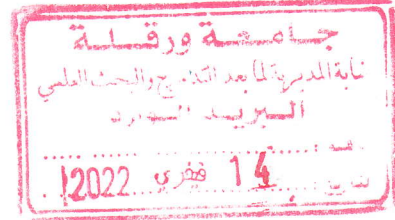 جامعة ورقلة
نيابة المديرية لما بعد التدرج والبحث العلمي
البريد الوارد
14 فيفري 2022